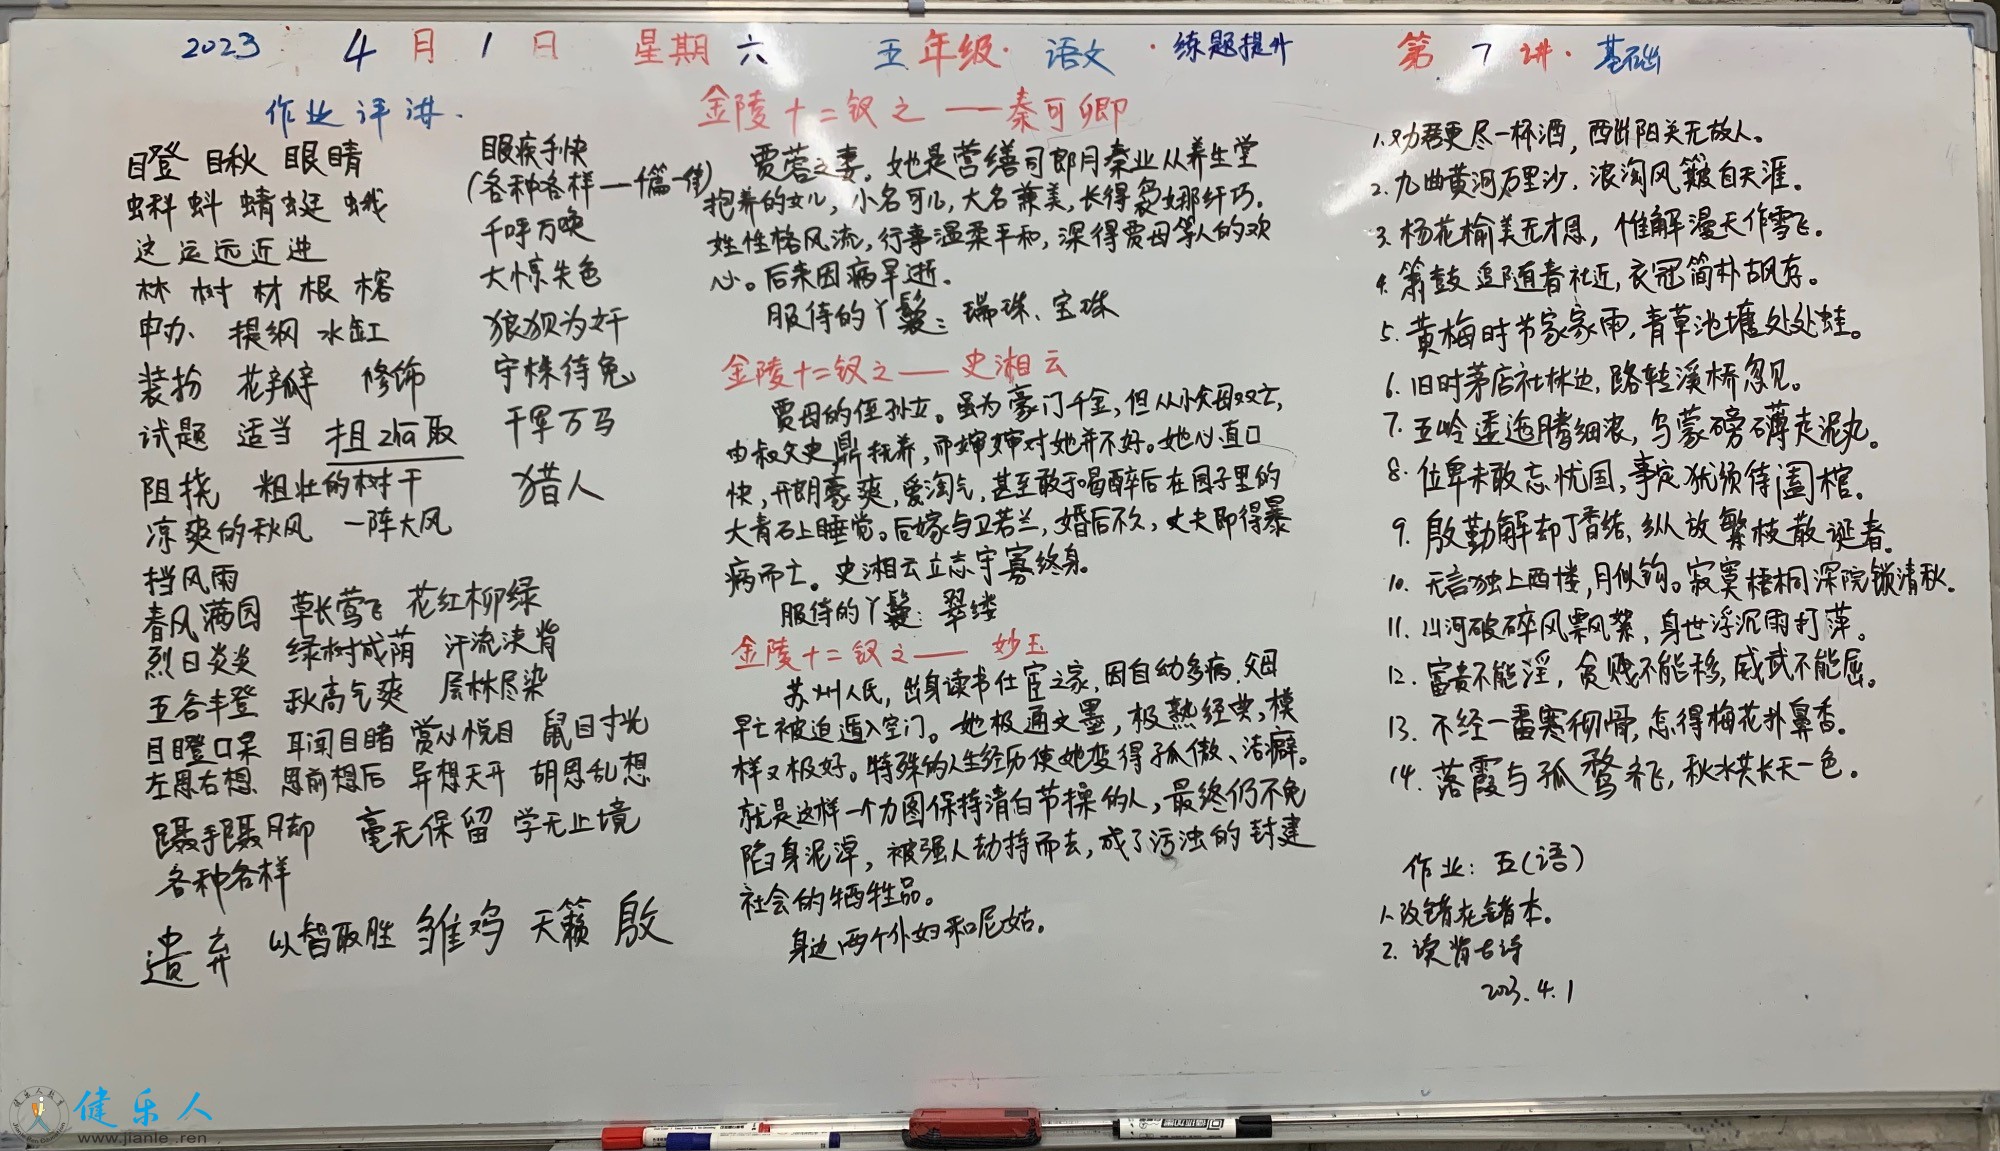 2023 4月1日 星期六 五年级·语文·练题提升 第7讲·基础
作业评讲.
瞪 瞅 眼睛
蝌蚪 蜻蜓 蛾
这运远近进
林 树 材 根 榕
申办、提纲 水缸
装扮 花瓣 修饰
试题 适当
阻挠 粗壮的树干
凉爽的秋风 一阵大风
挡风雨
春风满园 草长莺飞 花红柳绿
烈日炎炎 绿树成荫 汗流浃背
五谷丰登 秋高气爽 层林尽染
目瞪口呆 耳闻目睹 赏心悦目 鼠目寸光
左思右想 思前想后 异想天开 胡思乱想
蹑手蹑脚 毫无保留 学无止境
各种各样
遗弃 以智取胜 雏鸡 天籁 殷
眼疾手快
(各种各样—千篇一律)
千呼万唤
大惊失色
狼狈为奸
守株待兔
千军万马
猎人
金陵十二钗之——秦可卿
贾蓉之妻。她是营缮司郎月秦业从养生堂
抱养的女儿,小名可儿,大名兼美,长得袅娜纤巧.
姓性格风流,行事温柔平和,深得贾母等人的欢
心。后来因病早逝.
服侍的丫鬟:瑞珠、宝珠
金陵十二钗之——史湘云
贾母的侄孙女。虽为豪门千金,但从小父母双亡,
由叔父史鼎抚养,而婶婶对她并不好。她心直口
快,开朗豪爽,爱淘气,甚至敢于喝醉后在园子里的
大青石上睡觉。后嫁与卫若兰,婚后不久,丈夫即得暴
病而亡。史湘云立志守寡终身.
服侍的丫鬟:翠缕
金陵十二钗之——妙玉
苏州人氏,出身读书仕宦之家,因自幼多病.父母
早亡被迫遁入空门。她极通文墨,极熟经典,模
样又极好。特殊的人生经历使她变得孤傲、洁癖。
就是这样一个力图保持清白节操的人,最终仍不免
陷身泥淖,被强人劫持而去,成了污浊的封建
社会的牺牲品。
身边两个仆妇和尼姑。
1.劝君更尽一杯酒,西出阳关无故人。
2.九曲黄河万里沙,浪淘风簸自天涯。
3.杨花榆荚无才思,惟解漫天作雪飞。
4.箫鼓追随春社近,衣冠简朴古风存。
5.黄梅时节家家雨,青草池塘处处蛙。
6.旧时茅店社林边,路转溪桥忽见。
7.五岭逶迤腾细浪,乌蒙磅礴走泥丸。
8.位卑未敢忘忧国,事定犹须待阖棺.
9.殷勤解却丁香结,纵放繁枝散诞春.
10.无言独上西楼,月似钩。寂寞梧桐深院锁清秋.
11.山河破碎风飘絮,身世浮沉雨打萍。
12.富贵不能淫,贫贱不能移,威武不能屈。
13.不经一番寒彻骨,怎得梅花扑鼻香。
14.落霞与孤鹜齐飞,秋水共长天一色。
作业:五(语)
1.改错在错本。
2.读背古诗
2023.4.1
健乐人
www.jianle.ren